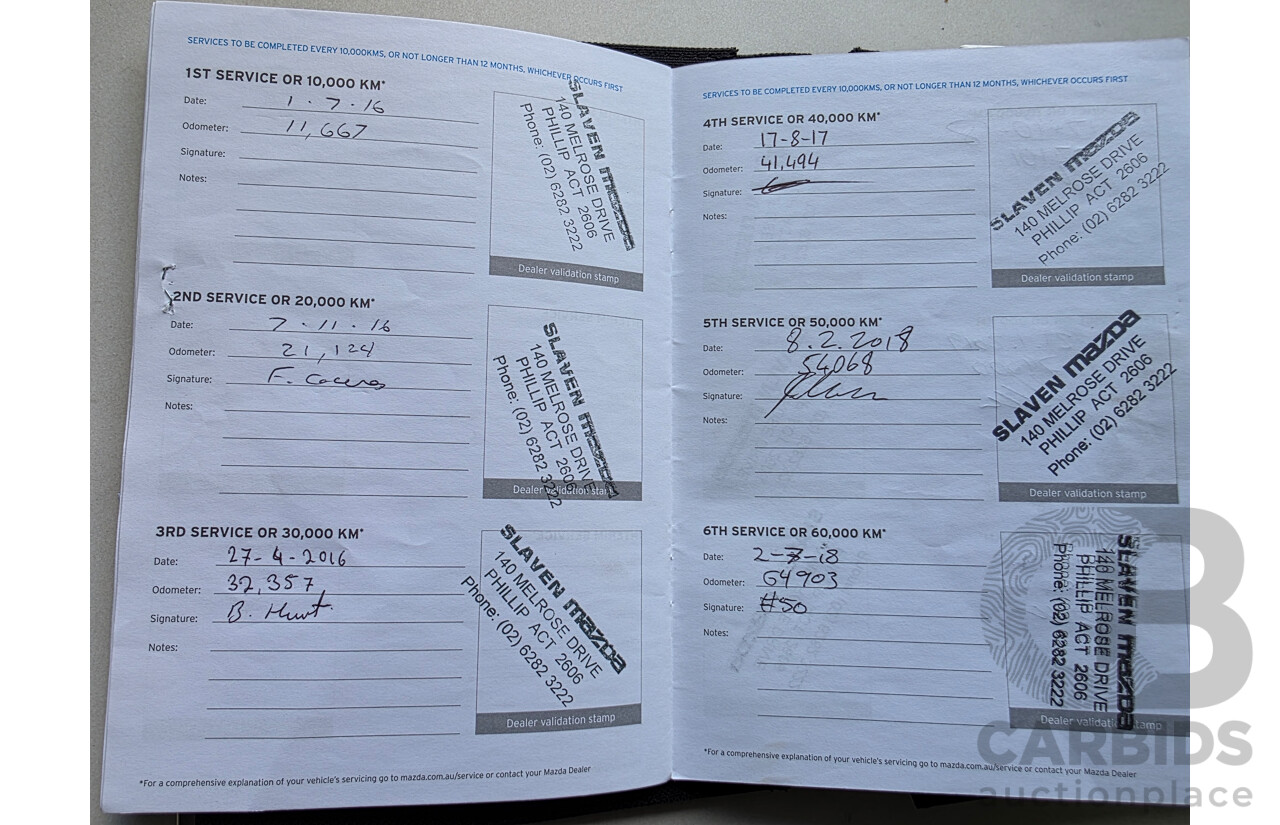 SERVICES TO BE COMPLETED EVERY 10,000KMS, OR NOT LONGER THAN 12 MONTHS, WHICHEVER OCCURS FIRST
1ST SERVICE OR 10,000 KM*
Date: 1.7.16
Odometer: 11,667
Signature:
Notes:
SLAVEN mazda
140 MELROSE DRIVE
PHILLIP ACT 2606
Phone: (02) 6282 3222
Dealer validation stamp
2ND SERVICE OR 20,000 KM*
Date: 7.11.16
Odometer: 21,124
Signature: F.
Notes:
SLAVEN mazda
140 MELROSE DRIVE
PHILLIP ACT 2606
Phone: (02) 6282 3222
Dealer validation stamp
3RD SERVICE OR 30,000 KM*
Date: 27-4-2016
Odometer: 32,357
Signature: B. Hunt
Notes:
SLAVEN mazda
140 MELROSE DRIVE
PHILLIP ACT 2606
Phone: (02) 6282 3222
Dealer validation stamp
*For a comprehensive explanation of your vehicle's servicing go to mazda.com.au/service or contact your Mazda Dealer
SERVICES TO BE COMPLETED EVERY 10,000KMS, OR NOT LONGER THAN 12 MONTHS, WHICHEVER OCCURS FIRST
4TH SERVICE OR 40,000 KM*
Date: 17-8-17
Odometer: 41,494
Signature:
Notes:
SLAVEN mazda
140 MELROSE DRIVE
PHILLIP ACT 2606
Phone: (02) 6282 3222
Dealer validation stamp
5TH SERVICE OR 50,000 KM*
Date: 8.2.2018
Odometer: 54,068
Signature:
Notes:
SLAVEN mazda
140 MELROSE DRIVE
PHILLIP ACT 2606
Phone: (02) 6282 3222
Dealer validation stamp
6TH SERVICE OR 60,000 KM*
Date: 2-7-18
Odometer: 64903
Signature: #50
Notes:
SLAVEN mazda
140 MELROSE DRIVE
PHILLIP ACT 2606
Phone: (02) 6282 3222
Dealer validation stamp
*For a comprehensive explanation of your vehicle's servicing go to mazda.com.au/service or contact your Mazda Dealer
CARBIDS
auctionplace